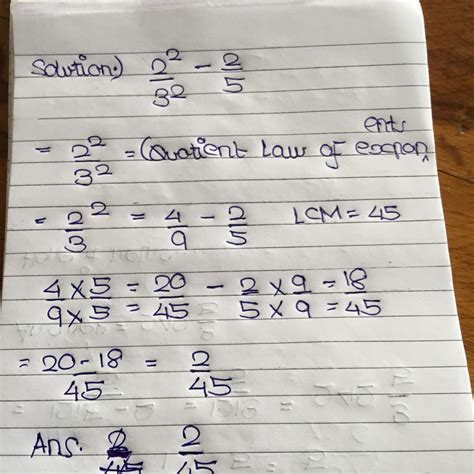 Solution:) 2²/3² - 2/5
= 2²/3² = (Quotient Law of exponents
= 2²/3 = 4/9 - 2/5 LCM = 45
4×5/9×5 = 20/45 - 2×9/5×9 = 18/45
= 20-18/45 = 2/45
Ans. 2/45 2/45